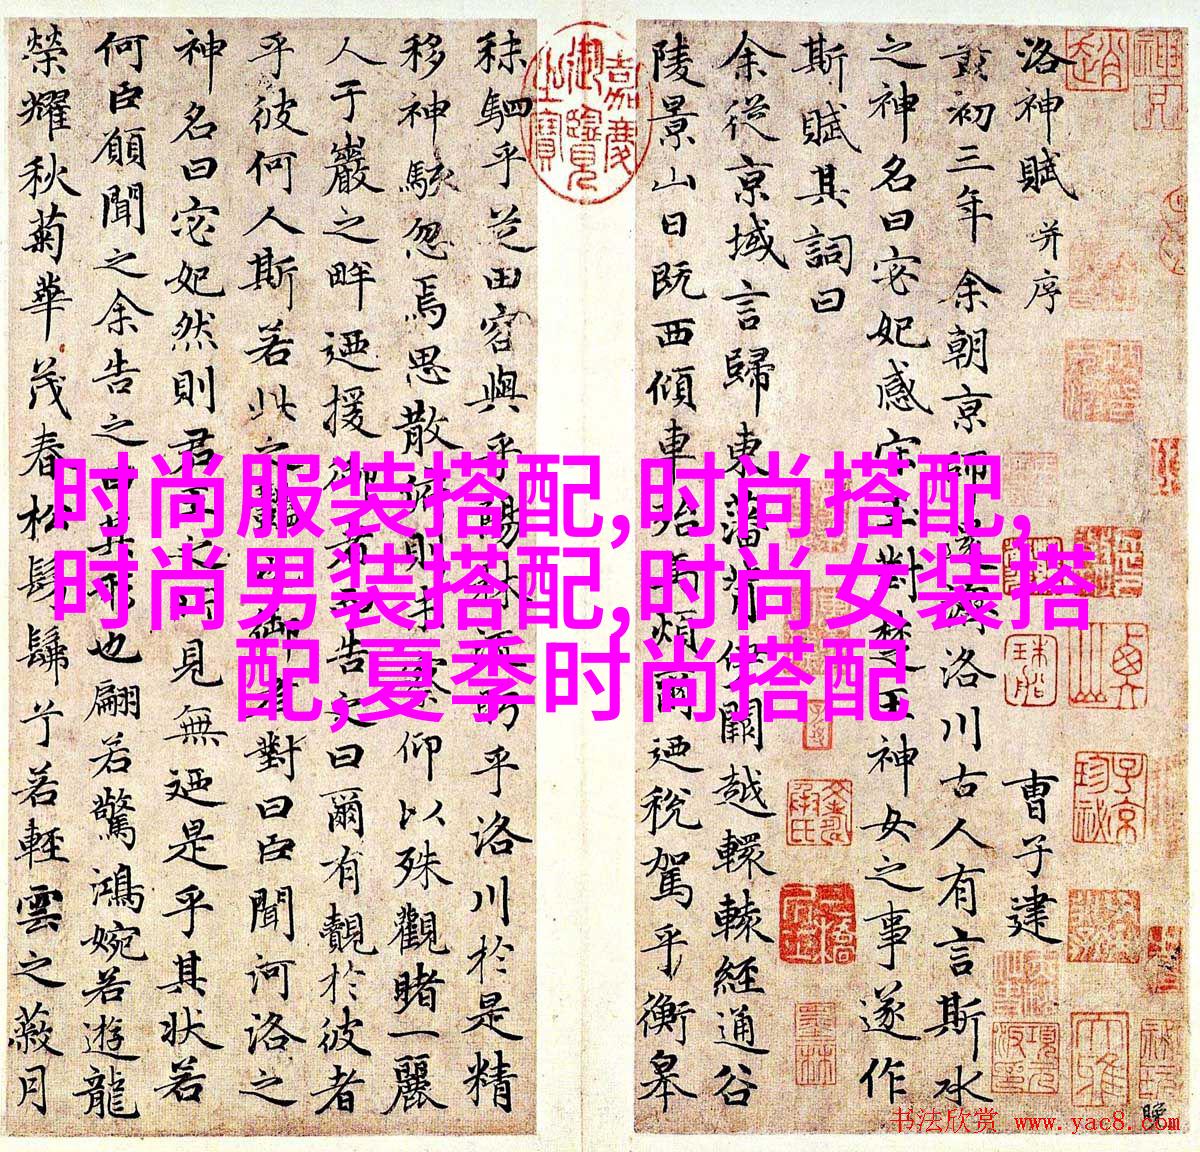 洛神賦 并序 曹子建
黄初三年余朝京師還濟洛川古人有言斯水
之神名曰宓妃感宋玉對楚王神女之事遂作
斯賦其詞曰
余從京域言歸東藩背伊闕越轘轅經通谷
陵景山日既西傾車殆馬煩爾迺稅駕乎衡皋
秣駟乎芝田容與乎陽林流眄乎洛川於是精
移神駭忽焉思散俯則未察仰以殊觀睹一麗
人于巖之畔迺援御者而告之曰爾有覿於彼者
乎彼何人斯若此之豔也御者對曰臣聞河洛之
神名曰宓妃然則君王之所見無迺是乎其状若
何臣願聞之余告之曰其形也翩若驚鴻婉若遊龍
榮耀秋菊華茂春松髣髴兮若輕雲之蔽月
嘉慶御覽之寶
時尚服装搭配,时尚搭配,
时尚男装搭配,时尚女装搭
配,夏季时尚搭配
书法欣赏 www.yac8.com